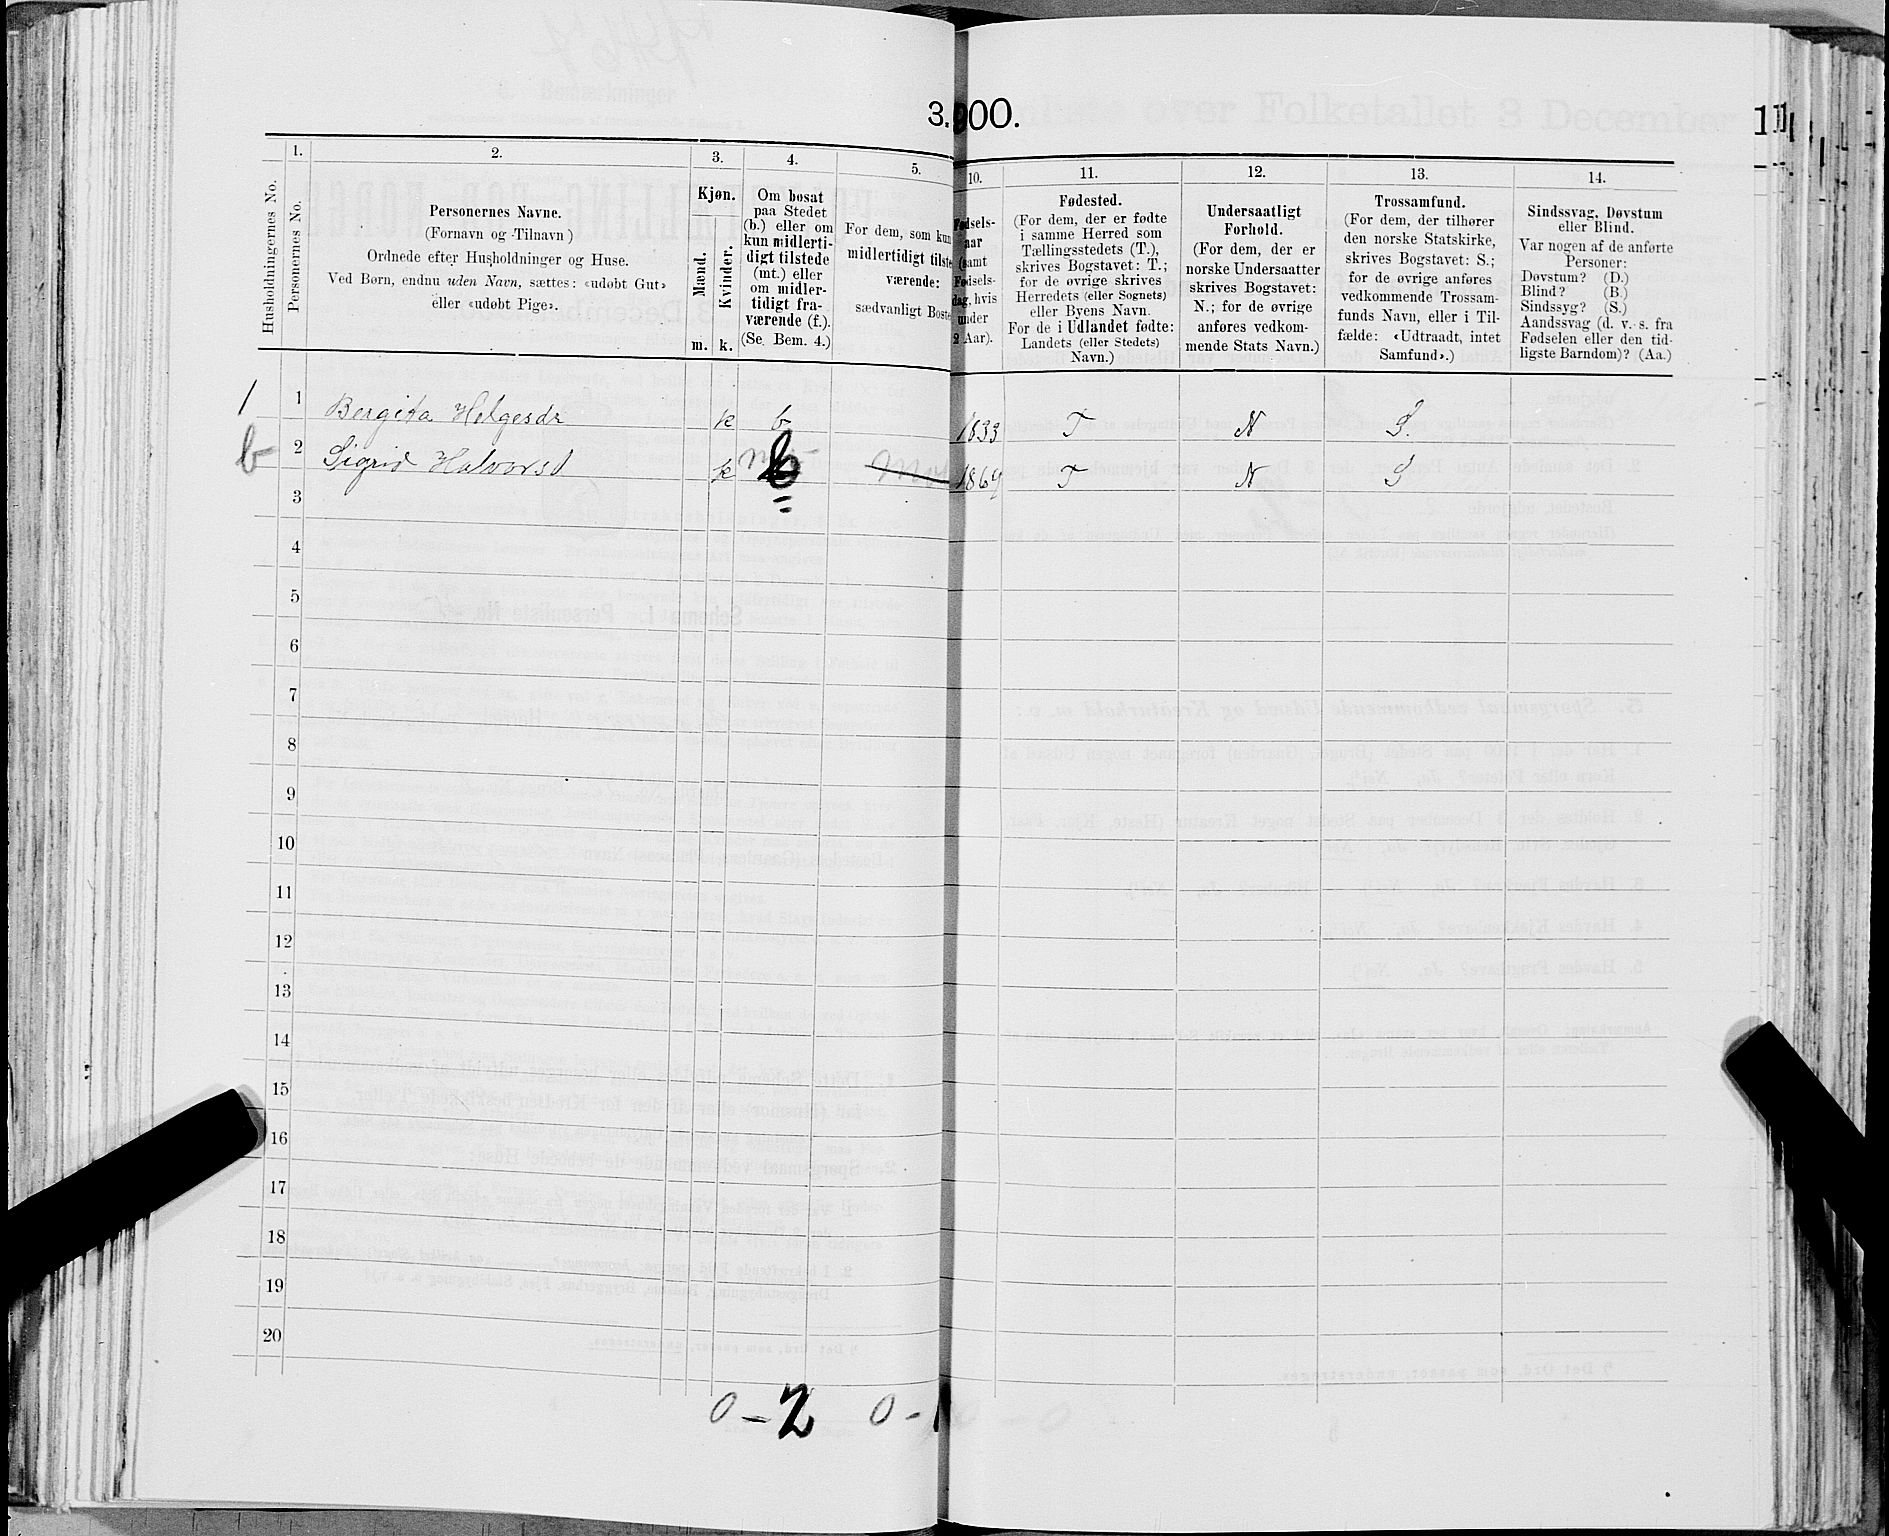 3. 900. 11
Husholdningernes No.
1.
Personernes No.
2.
Personernes Navne.
(Fornavn og Tilnavn)
Ordnede efter Husholdninger og Huse.
Ved Børn, endnu uden Navn, sættes: «udøbt Gut»
eller «udøbt Pige».
3.
Kjøn.
Mænd.
Kvinder.
m. k.
4.
Om bosat
paa Stedet
(b.) eller om
kun midlerti-
digt tilstede
(mt.) eller
om midler-
tidigt fra-
værende (f.).
(Se. Bem. 4.)
5.
For dem, som kun
midlertidigt tilste
værende:
sædvanligt Boste
10.
Fødsels-
aar
(samt
Fødsels-
dag, hvis
under
2 Aar).
11.
Fødested.
(For dem, der er fødte
i samme Herred som
Tællingsstedets (T.),
skrives Bogstavet: T.;
for de øvrige skrives
Herredets (eller Sognets)
eller Byens Navn.
For de i Udlandet fødte:
Landets (eller Stedets)
Navn.)
12.
Undersaatligt
Forhold.
(For dem, der er
norske Undersaatter
skrives Bogstavet:
N.; for de øvrige
anføres vedkom-
mende Stats Navn.)
13.
Trossamfund.
(For dem, der tilhører
den norske Statskirke,
skrives Bogstavet: S.;
for de øvrige anføres
vedkommende Trossam-
funds Navn, eller i Til-
fælde: «Udtraadt, intet
Samfund».)
14.
Sindssvag, Døvstum
eller Blind.
Var nogen af de anførte
Personer:
Døvstum? (D.)
Blind? (B.)
Sindssyg? (S.)
Aandssvag (d. v. s. fra
Fødselen eller den tid-
ligste Barndom)? (Aa.)
1 1 Bergita Helgesdr k b 1833 T N S.
b 2 Sigrid Halvorsd k b 1869 T N S
3
4
5
6
7
8
9
10
11
12
13
14
15
16
17
18
19
20
0 - 2 0 - 1